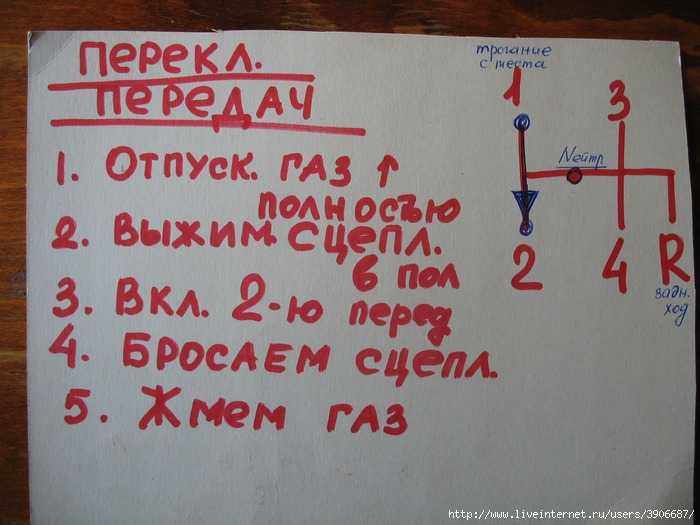 ПЕРЕКЛ.
ПЕРЕДАЧ
1. ОТПУСК. ГАЗ ↑
ПОЛНОСЪЮ
2. ВЫЖИМ. СЦЕПЛ.
В ПОЛ
3. ВКЛ. 2-Ю перед
4. БРОСАЕМ СЦЕПЛ.
5. ЖМЕМ ГАЗ
трогание
с места
1 3
Nейтр
2 4 R
задн.
ход
http://www.liveinternet.ru/users/3906687/